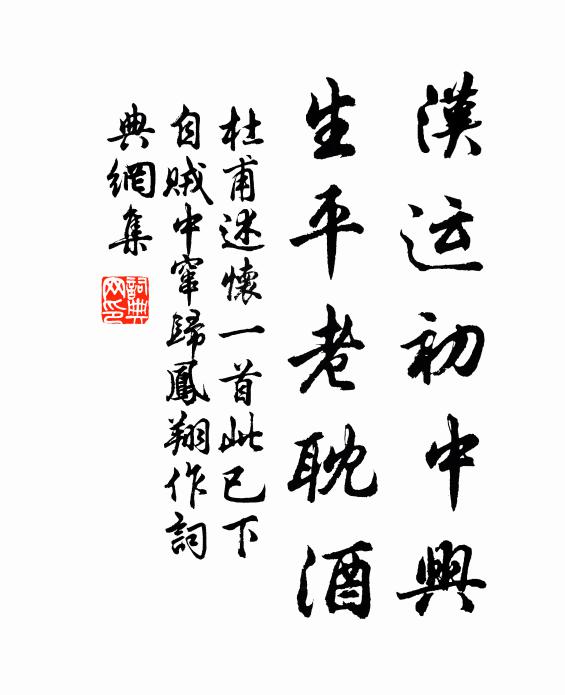 漢运初中興
生平老耽酒
杜甫述懷一首此已下
自賊中窜歸鳳翔作詞
典網集
詞典
网印